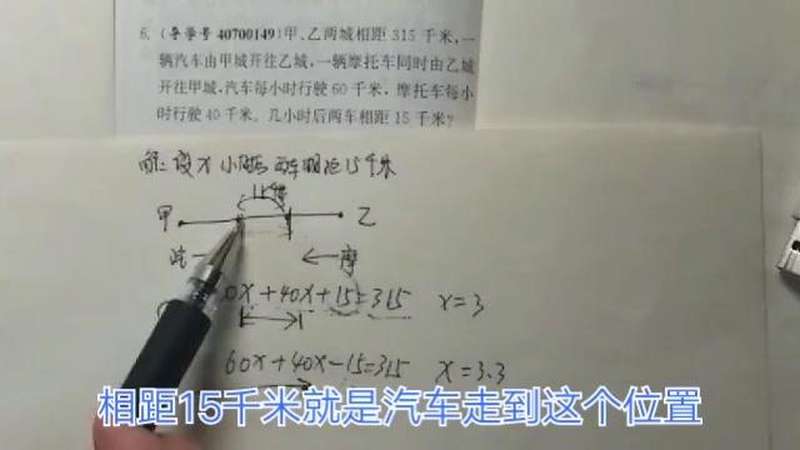 6.(导学号 40700149)甲、乙两城相距 315 千米,一
辆汽车由甲城开往乙城,一辆摩托车同时由乙城
开往甲城,汽车每小时行驶60千米,摩托车每小
时行驶40千米。几小时后两车相距15千米?
解:设x小时后两车相距15千米
甲 乙
←摩
0x+40x+15=315 x=3
60x+40x-15=315 x=3.3
相距15千米就是汽车走到这个位置